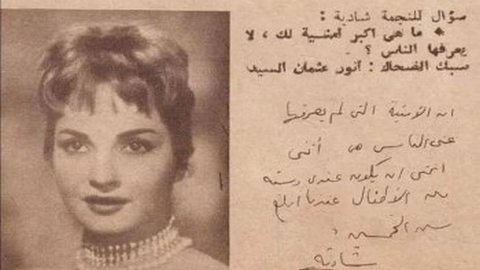 سؤال للنجمة شادية :
* ما هى اكبر امنية لك ، لا
يعرفها الناس ؟ .
سبك الضحاك : أنور عثمان السيد
ان الامنية التى لم يعرفها
عنى الناس هى أننى
اتمنى ان يكون عندى دستة
من الأطفال عندما ابلغ
سن الخمسين
شادية